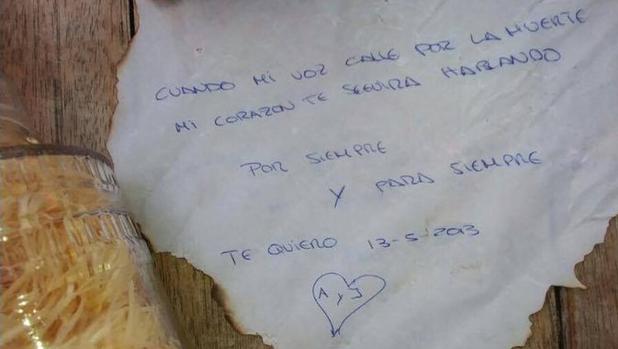 CUANDO MI VOZ CALLE POR LA MUERTE
MI CORAZON TE SEGUIRA HABLANDO
POR SIEMPRE
Y PARA SIEMPRE
TE QUIERO 13-5-2013
A y J